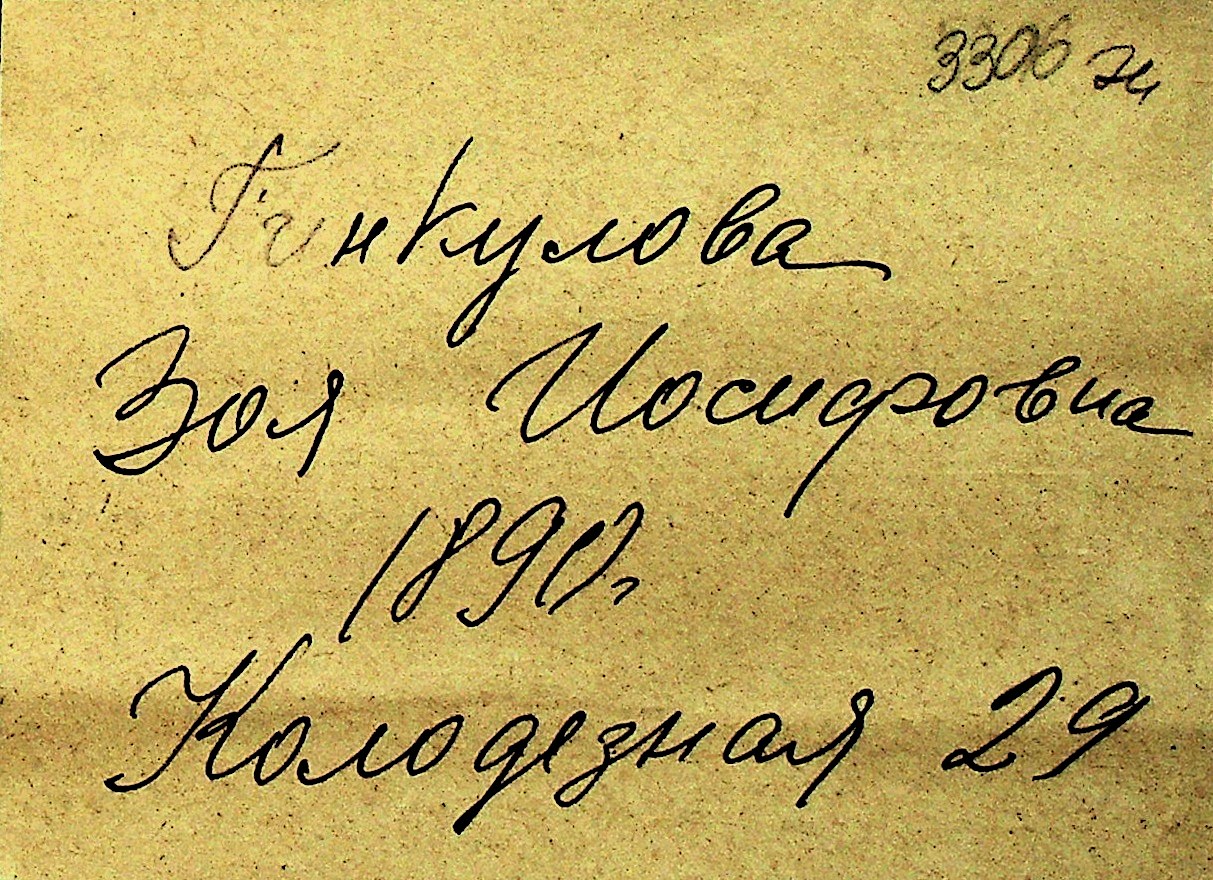 3306
Гинкулова
Зоя Иосифовна
1890г
Колодезная 29